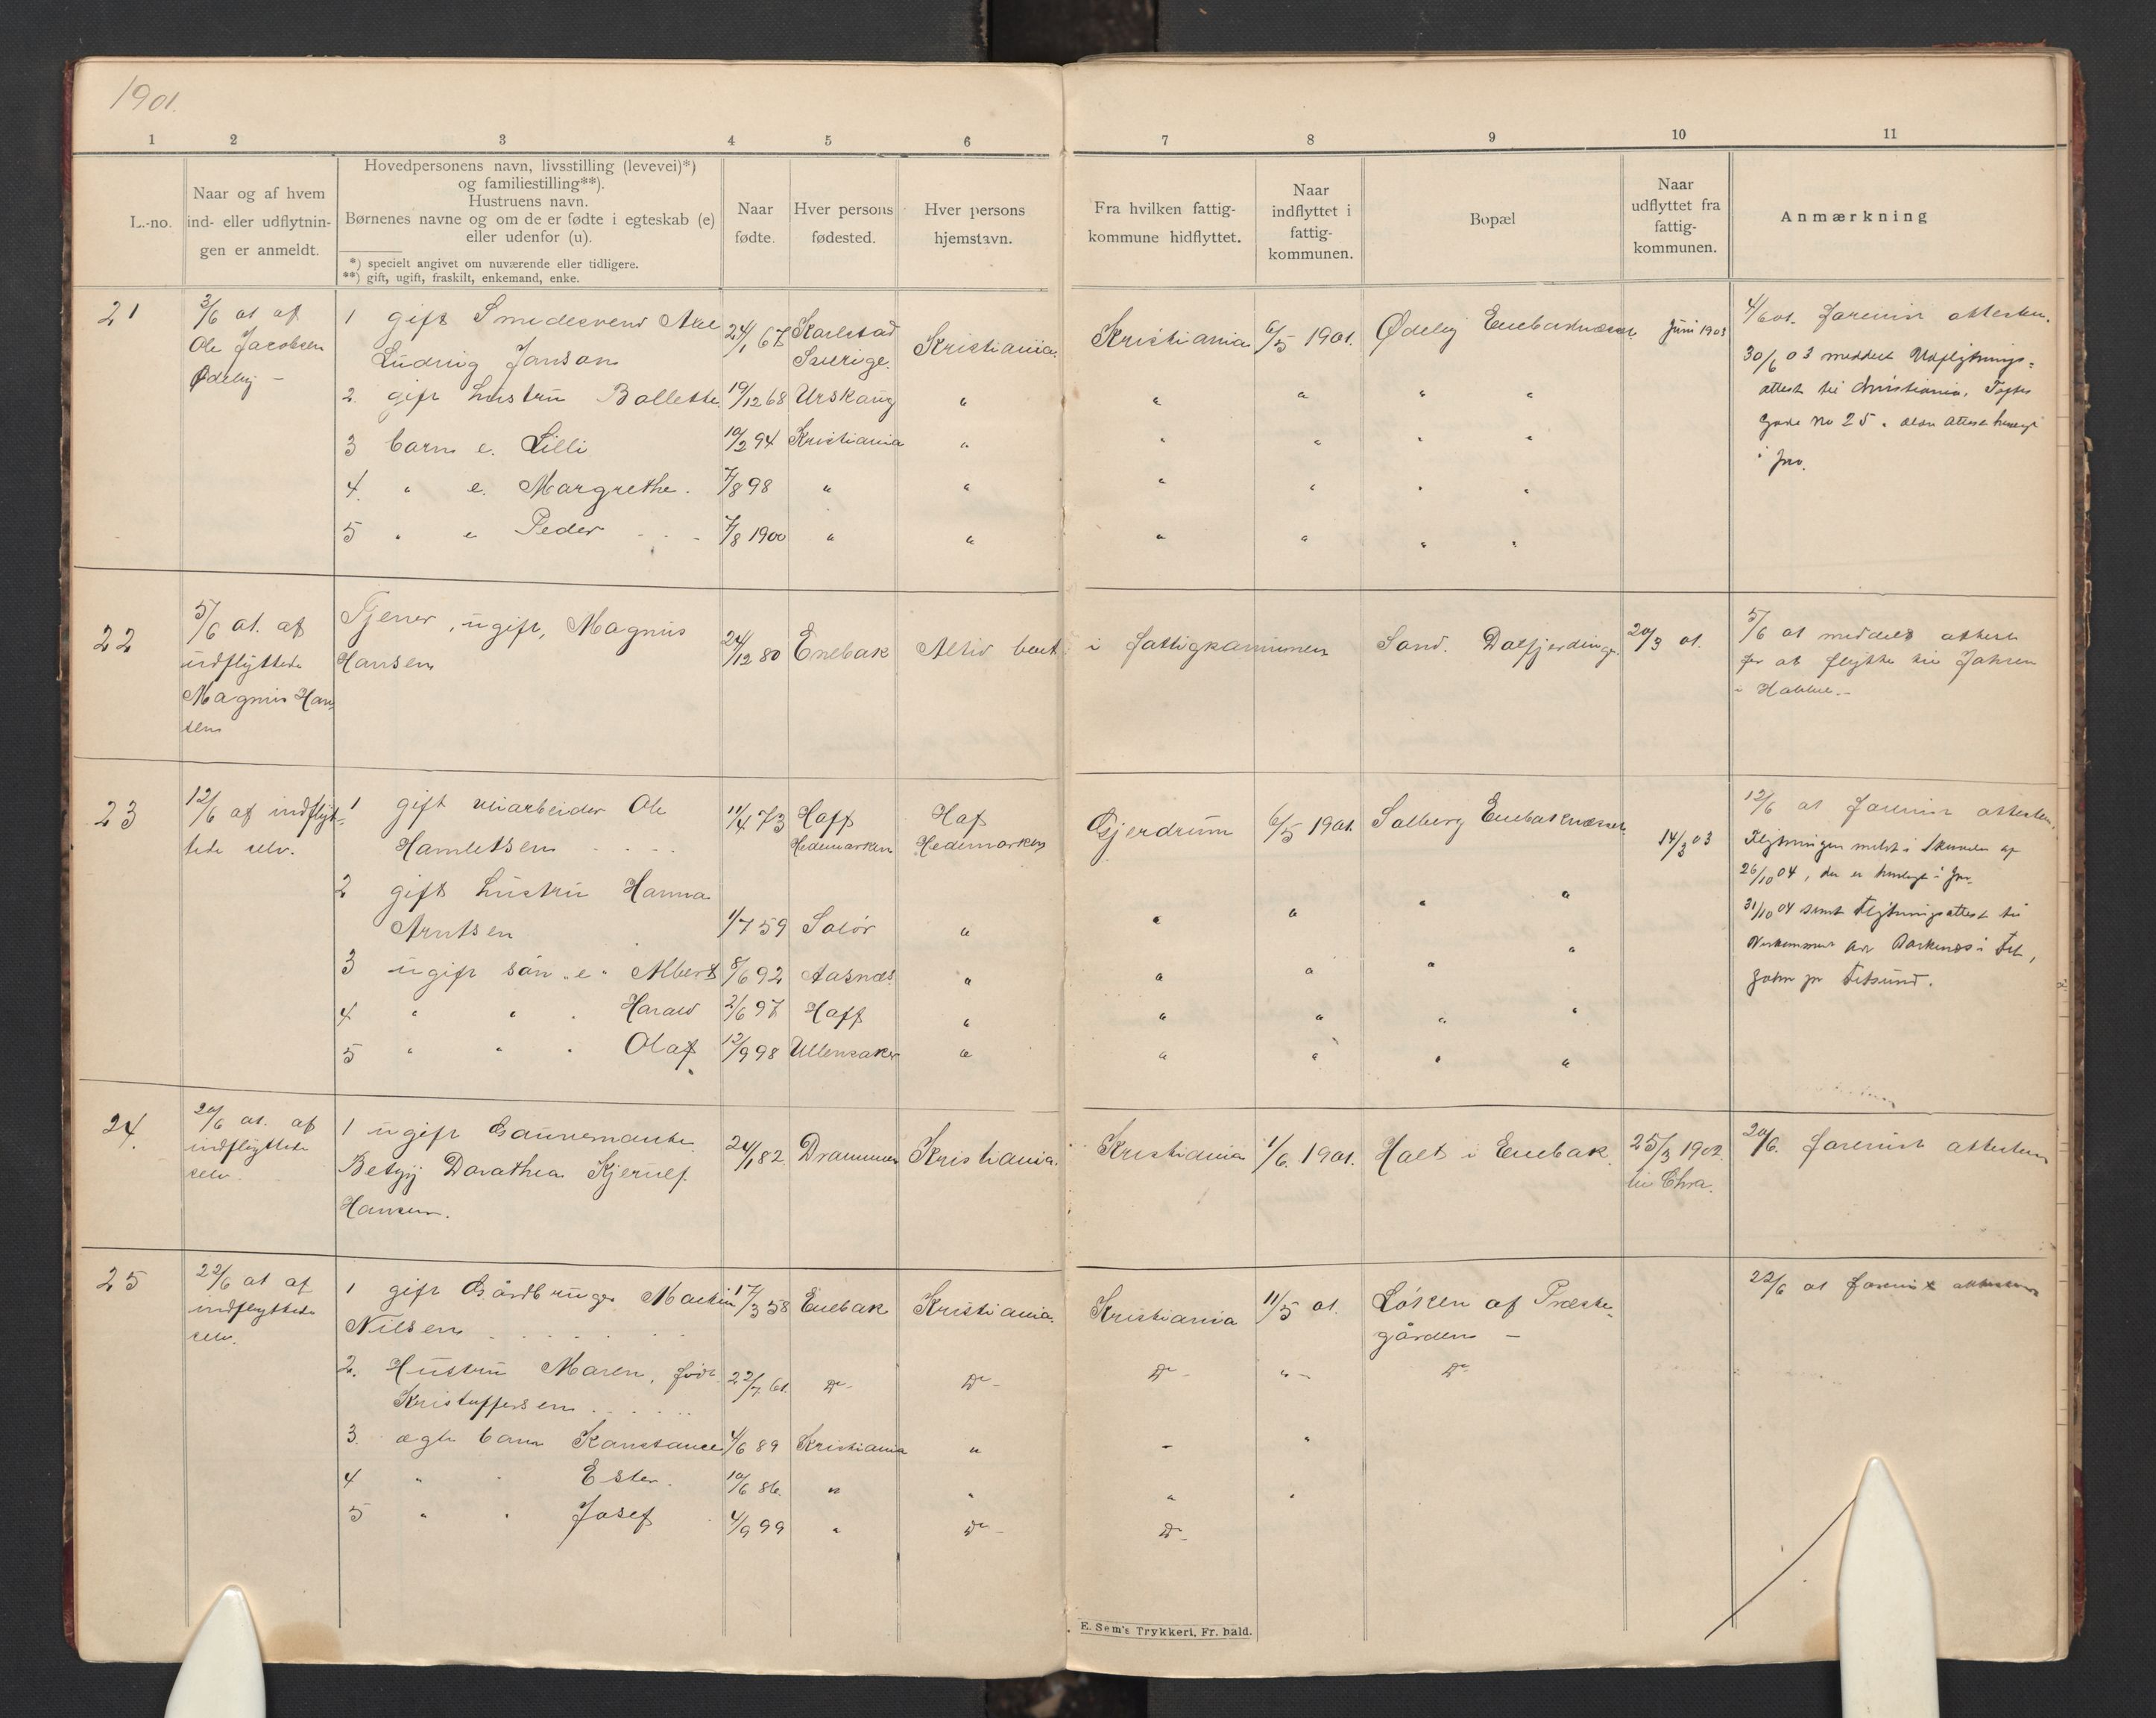 1901.
1 2 3 4 5 6
L.-no.
Naar og af hvem
ind- eller udflytnin-
gen er anmeldt.
Hovedpersonens navn, livsstilling (levevei)*)
og familiestilling**).
Hustruens navn.
Børnenes navne og om de er fødte i egteskab (e)
eller udenfor (u).
*) specielt angivet om nuværende eller tidligere.
**) gift, ugift, fraskilt, enkemand, enke.
Naar
fødte.
Hver persons
fødested.
Hver persons
hjemstavn.
21
3/6 01 af
Ole Jacobsen
Ødeby –
1 gift Smedesvend
Ludvig Janson
24/1 67
Karlstad
Sverige.
Kristiania.
2. gift hustru Bollette 19/12 68 Urskaug "
3 barn e. Lilli 10/2 94 Kristiania "
4. " e. Margrethe. 7/8 98 " "
5 " e Peder 7/8 1900 " "
22
5/6 01. af
indflyttede
Magnus Han
sen
Tjener, ugift, Magnus
Hansen
24/12 80 Enebak Altid boet
23
12/6 af indflyt-
tede selv.
1 gift Ole
Hamletsen
11/4 73
Hoff
Hedemarken
Hof
Hedemarken
2 gift hustru Hanna
Arntsen
1/7 59 Solør "
3 ugift sön "e" Albert 8/6 92 Aasnæs "
4 " " " Harald 2/6 97 Hoff "
5 " " " Olaf 12/9 98 Ullensaker "
24.
20/6 01. af
indflyttede
selv.
1 ugift
Betzy Dorathea Kjerulf
Hansen.
24/1 82 Drammen Kristiania.
25
22/6 01 af
indflyttede
selv.
1 gift Gårdbruger Martin
Nilsen
17/3 58 Enebak Kristiania.
2. Hustru Maren, född
Kristoffersen
22/7 61. Do - Do -
3. ægte barn Konstance 4/6 89 Kristiania "
4 " " Ester. 10/6 86. " "
5 " " Josef 4/9 99 " Do -
7 8 9 10 11
Fra hvilken fattig-
kommune hidflyttet.
Naar
indflyttet i
fattig-
kommunen.
Bopæl
Naar
udflyttet fra
fattig-
kommunen.
Anmærkning
Kristiania 6/5 1901. Ødeby Enebaknesset Juni 1903
4/6 01. forevist attesten.
30/6 03 meddelt Udflytnings-
attest til Kristiania, Toftes
gade No 25.
i Jno.
" " " "
" " " "
" " " "
" " " "
i fattigkommunen Sand. Dalfjerdingen 20/3 01.
5/6 01 meddelt attest
for at flytte til
i Hobbel.–
Gjerdrum 6/5 1901. Solberg Enebaknesset 14/3 03
12/6 01 forevist attesten.
Flytningen meldt i skrivelse af
26/10 04, der er henlagt i Jno.
31/10 04 sendt flytningsattest til
i Fet,
pr Fetsund.
" " " "
" " " "
" " " "
" " " "
Kristiania 1/6. 1901. Holt i Enebak. 25/3 1902.
til Chra.
20/6. forevist attesten
Kristiania 11/5 01. Löken af Præste-
gården –
22/6 01 forevist attesten
Do - " - Do
- "
" "
Do -
E. Sem's Trykkeri, Fr. hald.